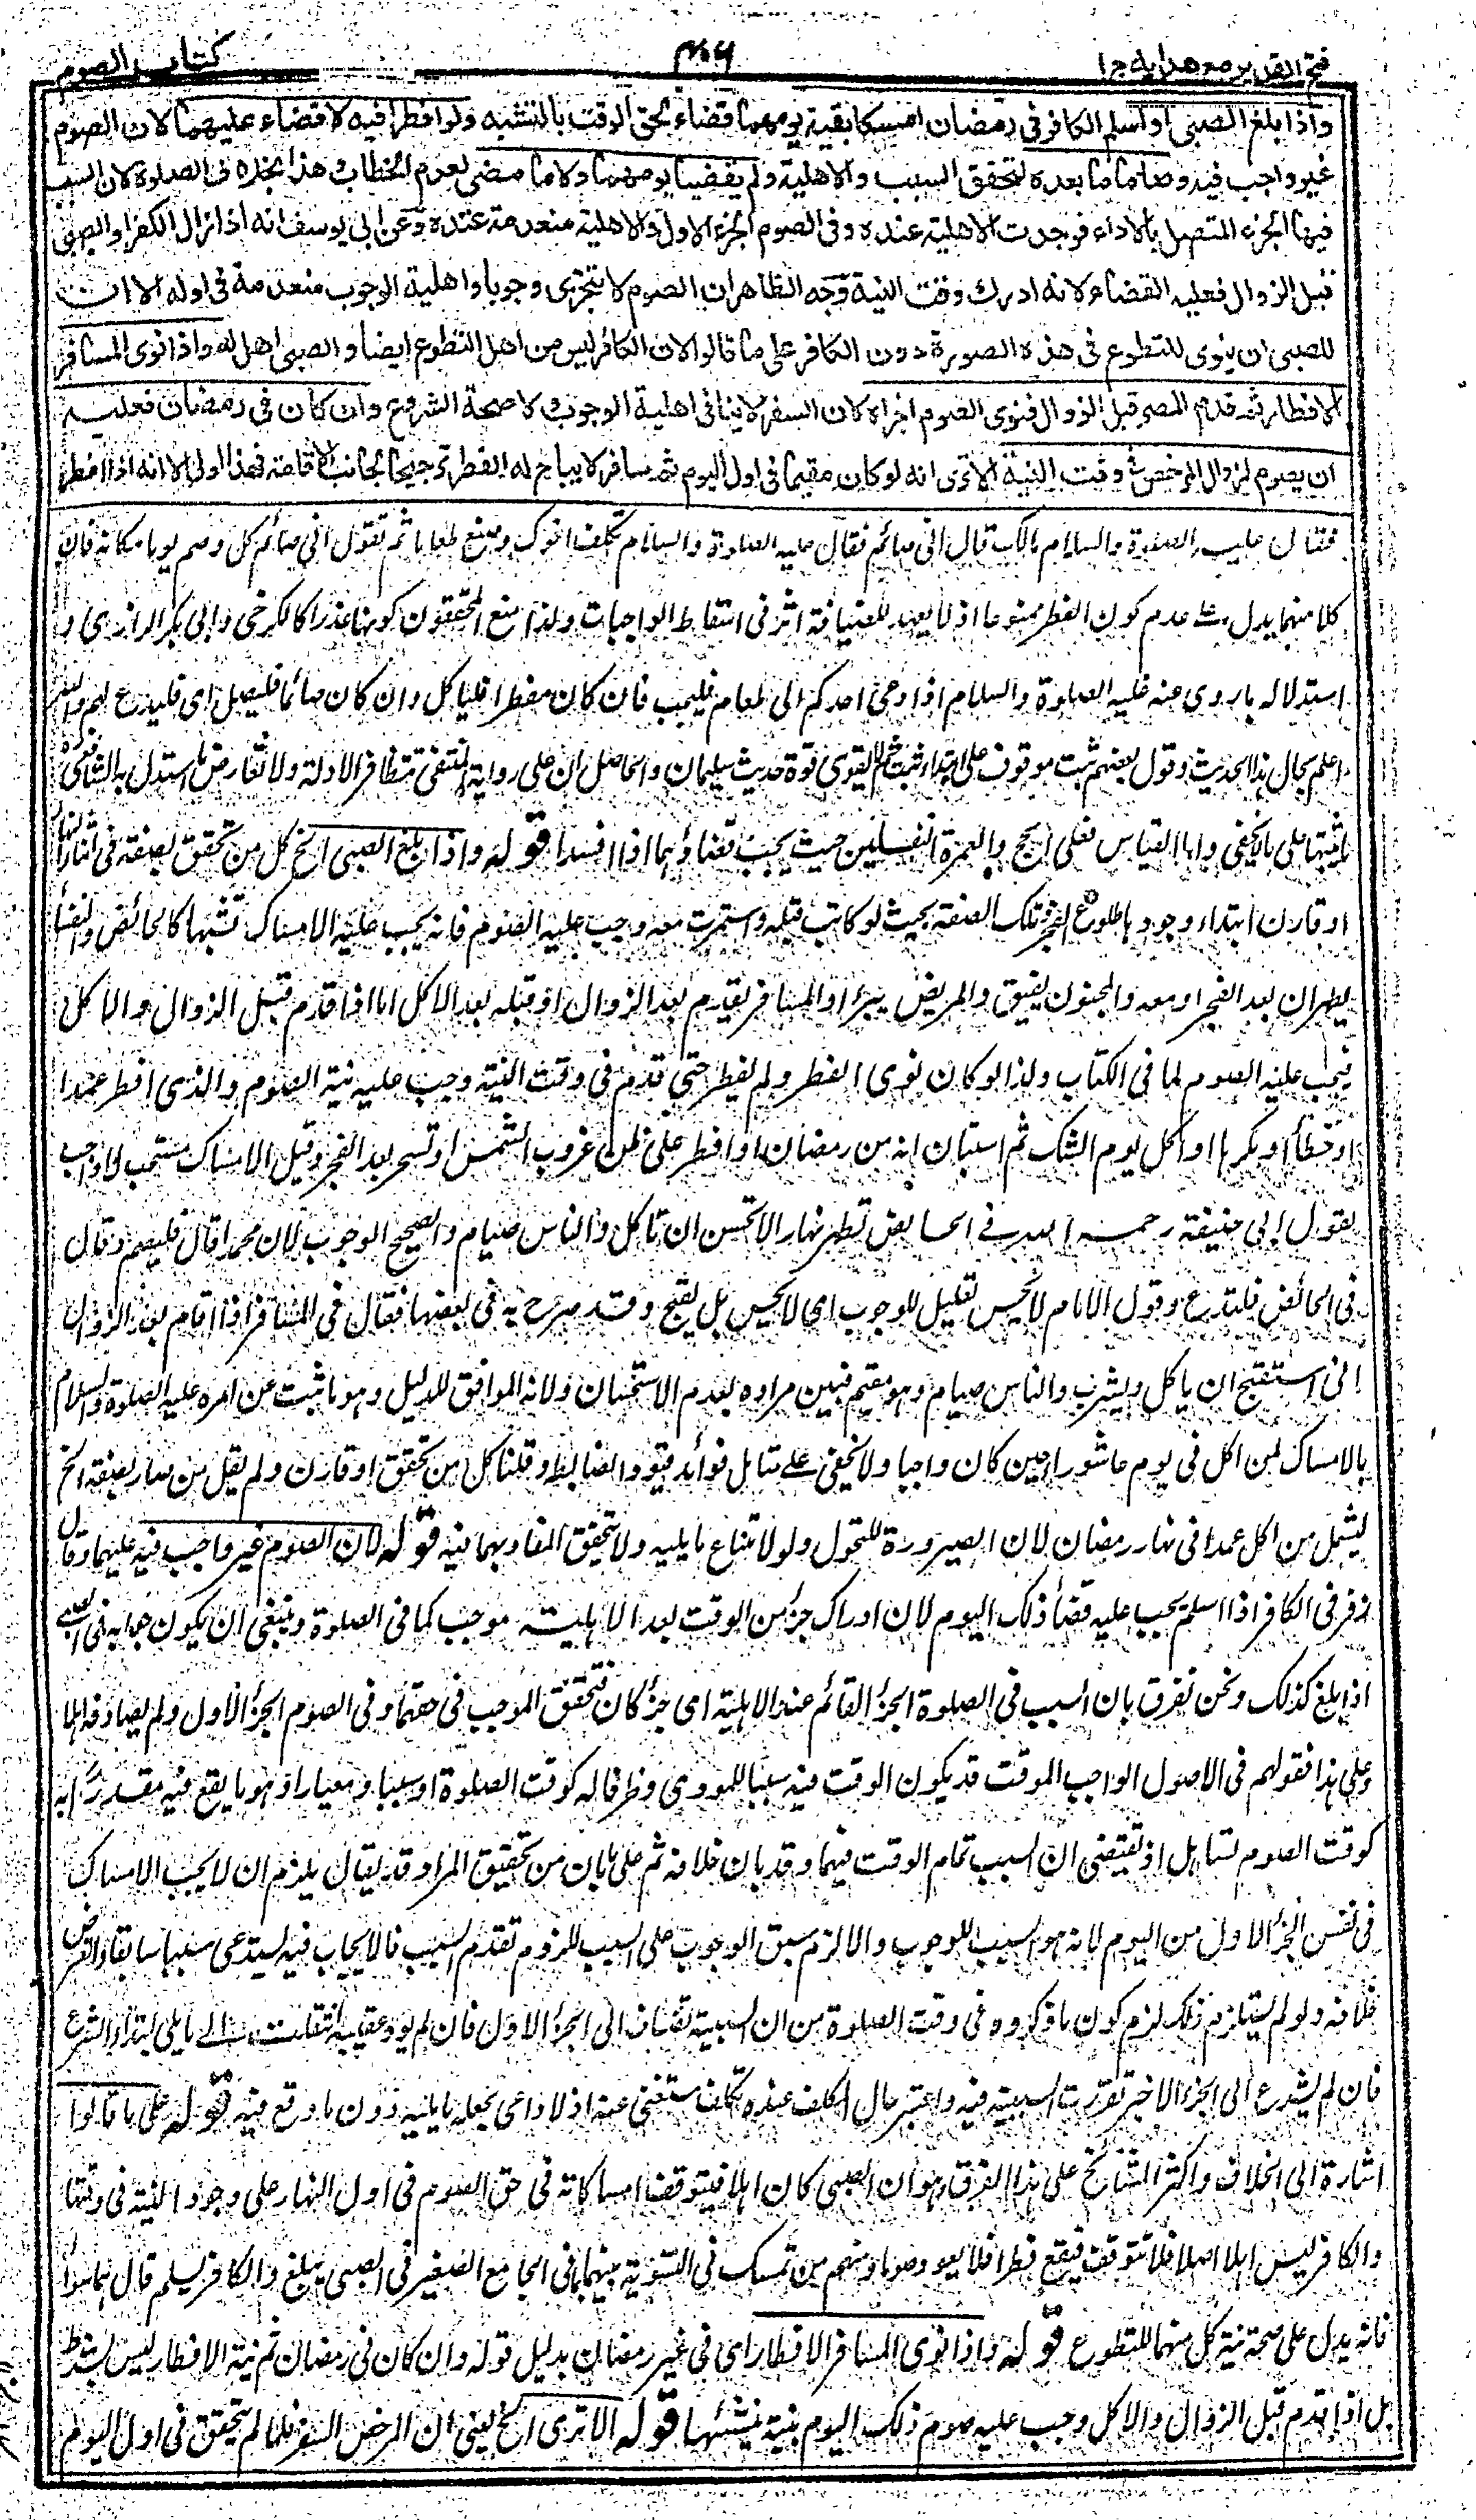 فتح القدير مع هدايه ج ا
۴۰۶
كتاب الصوم
واذا بلغ الصبى او اسلم الكافر فى رمضان امسكا بقية يومهما قضاء لحق الوقت بالتشبه ولو افطرا فيه لا قضاء عليهما لان الصوم
غير واجب فيه وصاما ما بعده لتحقق السبب والاهلية ولم يقضيا يومهما ولا ما مضى لعدم الخطاب وهذا بخلاف الصلوة لان السبب
فيها الجزء المتصل بالاداء فوجدت الاهلية عنده وفى الصوم الجزء الاول والاهلية منعدمة عنده وعن ابى يوسف انه اذا زال الكفر او الصبى
قبل الزوال فعليه القضاء لانه ادرك وقت النية وجه الظاهر ان الصوم لا يتجزى وجوبا واهلية الوجوب منعدمة فى اوله الا ان
للصبى ان ينوى للتطوع فى هذه الصورة دون الكافر على ما قالوا لان الكافر ليس من اهل التطوع ايضا والصبى اهل له واذا نوى المسافر
الافطار ثم قدم المصر قبل الزوال فنوى الصوم اجزاه لان السفر لا ينافى اهلية الوجوب ولا صحة الشروع وان كان فى رمضان فعليه
ان يصوم لزوال المرخص فى وقت النية الا ترى انه لو كان مقيما فى اول اليوم ثم سافر لا يباح له الفطر ترجيحا لجانب الاقامة فهذا اولى الا انه اذا افطر
فقال عليه الصلوة والسلام مالك قال انى صائم فقال عليه الصلوة والسلام تكلف اخوك وصنع طعاما ثم تقول انى صائم كل وصم يوما مكانه فان
كلا منهما يدل على عدم كون الفطر ممنوعا اذ لا يعهد للضيافة اثر فى اسقاط الواجبات ولذا منع المحققون كونها عذرا كالكرخى وابى بكر الرازى و
استدلا له بما روى عنه عليه الصلوة والسلام اذا دعى احدكم الى طعام فليجب فان كان مفطرا فلياكل وان كان صائما فليصل اى فليدع لهم والله
اعلم بحال هذا الحديث وقول بعضهم ثبت موقوف على ابداء ثبت ثم لا يقوى قوة حديث سليمان والحاصل ان على رواية المنتقى تتظافر الادلة ولا تعارض ما استدل به الشافعى
ما اثبتها على ما لا يخفى واما القياس فعلى الحج والعمرة النفلين حيث يجب قضاؤهما اذا افسدا قوله واذا بلغ الصبى الخ كل من تحقق بصفة فى اثناء النهار
او قارن ابتداء وجودها طلوع الفجر وتلك الصفة بحيث لو كانت قبله واستمرت معه وجب عليه الصوم فانه يجب عليه الامساك تشبها كالحائض والنفساء
يطهران بعد الفجر او معه والمجنون يفيق والمريض يبرأ والمسافر يقدم بعد الزوال او قبله بعد الاكل اما اذا قدم قبل الزوال والاكل
فيجب عليه الصوم لما فى الكتاب ولذا لو كان نوى الفطر ولم يفطر حتى قدم فى وقت النية وجب عليه نية الصوم والذى افطر عمدا
او خطأ او مكرها او اكل يوم الشك ثم استبان انه من رمضان او افطر على ظن غروب الشمس او تسحر بعد الفجر وقيل الامساك مستحب لا واجب
لقول ابى حنيفة رحمه الله فى الحائض تطهر نهارا لا تحسن ان تاكل والناس صيام والصحيح الوجوب لان محمدا قال فليصم وقال
فى الحائض فلتدع وقول الامام لا يحسن تعليل للوجوب اى لا يحسن بل يقبح وقد صرح به فى بعضها فقال فى المسافر اذا اقام بعد الزوال
انى استقبح ان ياكل ويشرب والناس صيام وهو مقيم فبين مراده بعدم الاستحسان ولانه الموافق للدليل وهو ما ثبت عن امره عليه الصلوة والسلام
بالامساك لمن اكل فى يوم عاشوراء حين كان واجبا ولا يخفى على متامل فوائد قيود الضابط وقلنا كل من تحقق او قارن ولم يقل من صار بصفة الخ
ليشمل من اكل عمدا فى نهار رمضان لان الصيرورة للتحول ولو لامتناع ما يليه ولا يتحقق المفاد بهما فيه قوله لان الصوم غير واجب فيه عليهما وقال
زفر فى الكافر اذا اسلم يجب عليه قضاء ذلك اليوم لان ادراك جزء من الوقت بعد الاهلية موجب كما فى الصلوة وينبغى ان يكون جوابه فى الصبى
اذا بلغ كذلك ونحن نفرق بان السبب فى الصلوة الجزء القائم عند الاهلية اى جزء كان فتحقق الموجب فى حقهما وفى الصوم الجزء الاول ولم يصادفه اهلا
وعلى هذا فقولهم فى الاصول الواجب الموقت قد يكون الوقت فيه سببا للمودى وظرفا له كوقت الصلوة او سببا ومعيارا وهو ما يقع فيه مقدرا به
كوقت الصوم تساهل اذ يقتضى ان السبب تمام الوقت فيهما وقد بان خلافه ثم على ما بان من تحقيق المراد قد يقال يلزم ان لا يجب الامساك
فى نفس الجزء الاول من اليوم لانه هو السبب للوجوب والا لزم سبق الوجوب على السبب للزوم تقدم السبب فالايجاب فيه يستدعى سببا سابقا والفرض
خلافه ولو لم يستلزم ذلك لزم كون ما ذكروه فى وقت الصلوة من ان السببية تضاف الى الجزء الاول فان لم يود عقيبه انتقلت الى ما يلى ابتداء الشرع
فان لم يشرع الى الجزء الاخير تقررت السببية فيه واعتبر حال المكلف عنده تكلف مستغنى عنه اذ لا داعى لجعله ما يليه دون ما وقع فيه قوله على ما قالوا
اشارة الى الخلاف واكثر المشائخ على هذا الفرق وهو ان الصبى كان اهلا فيتوقف امساكاته فى حق الصوم فى اول النهار على وجود النية فى وقتها
والكافر ليس اهلا اصلا فلا يتوقف فيقع فطرا فلا يعود صوما ومنهم من تمسك فى التسوية بينهما بما فى الجامع الصغير فى الصبى يبلغ والكافر يسلم قال هما سواء
فانه يدل على صحة نية كل منهما للتطوع قوله واذا نوى المسافر الافطار اى فى غير رمضان بدليل قوله وان كان فى رمضان ثم نية الافطار ليس بشرط
بل اذا قدم قبل الزوال والاكل وجب عليه صوم ذلك اليوم بنية ينشئها قوله الا ترى الخ يعنى ان المرخص السفر فلما لم يتحقق فى اول اليوم